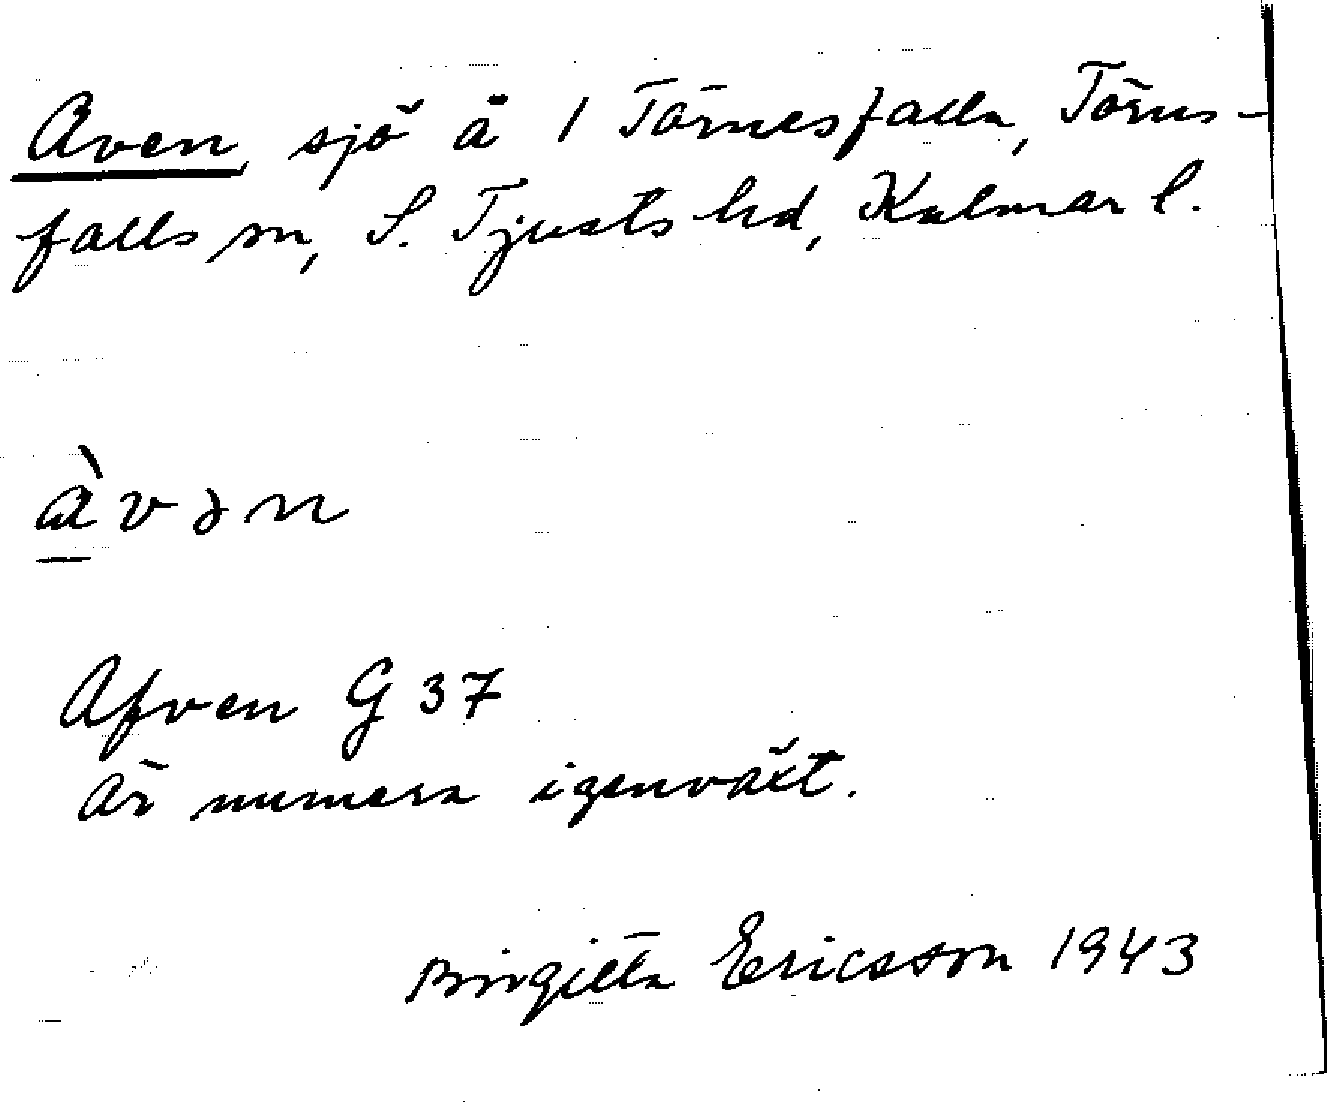 Aven, sjö å 1 Törnesfalla, Törns-
falls sn, S. Tjusts hd, Kalmar l.
àvən
Afven G 37
Är numera igenväxt.
Birgitta Ericsson 1943